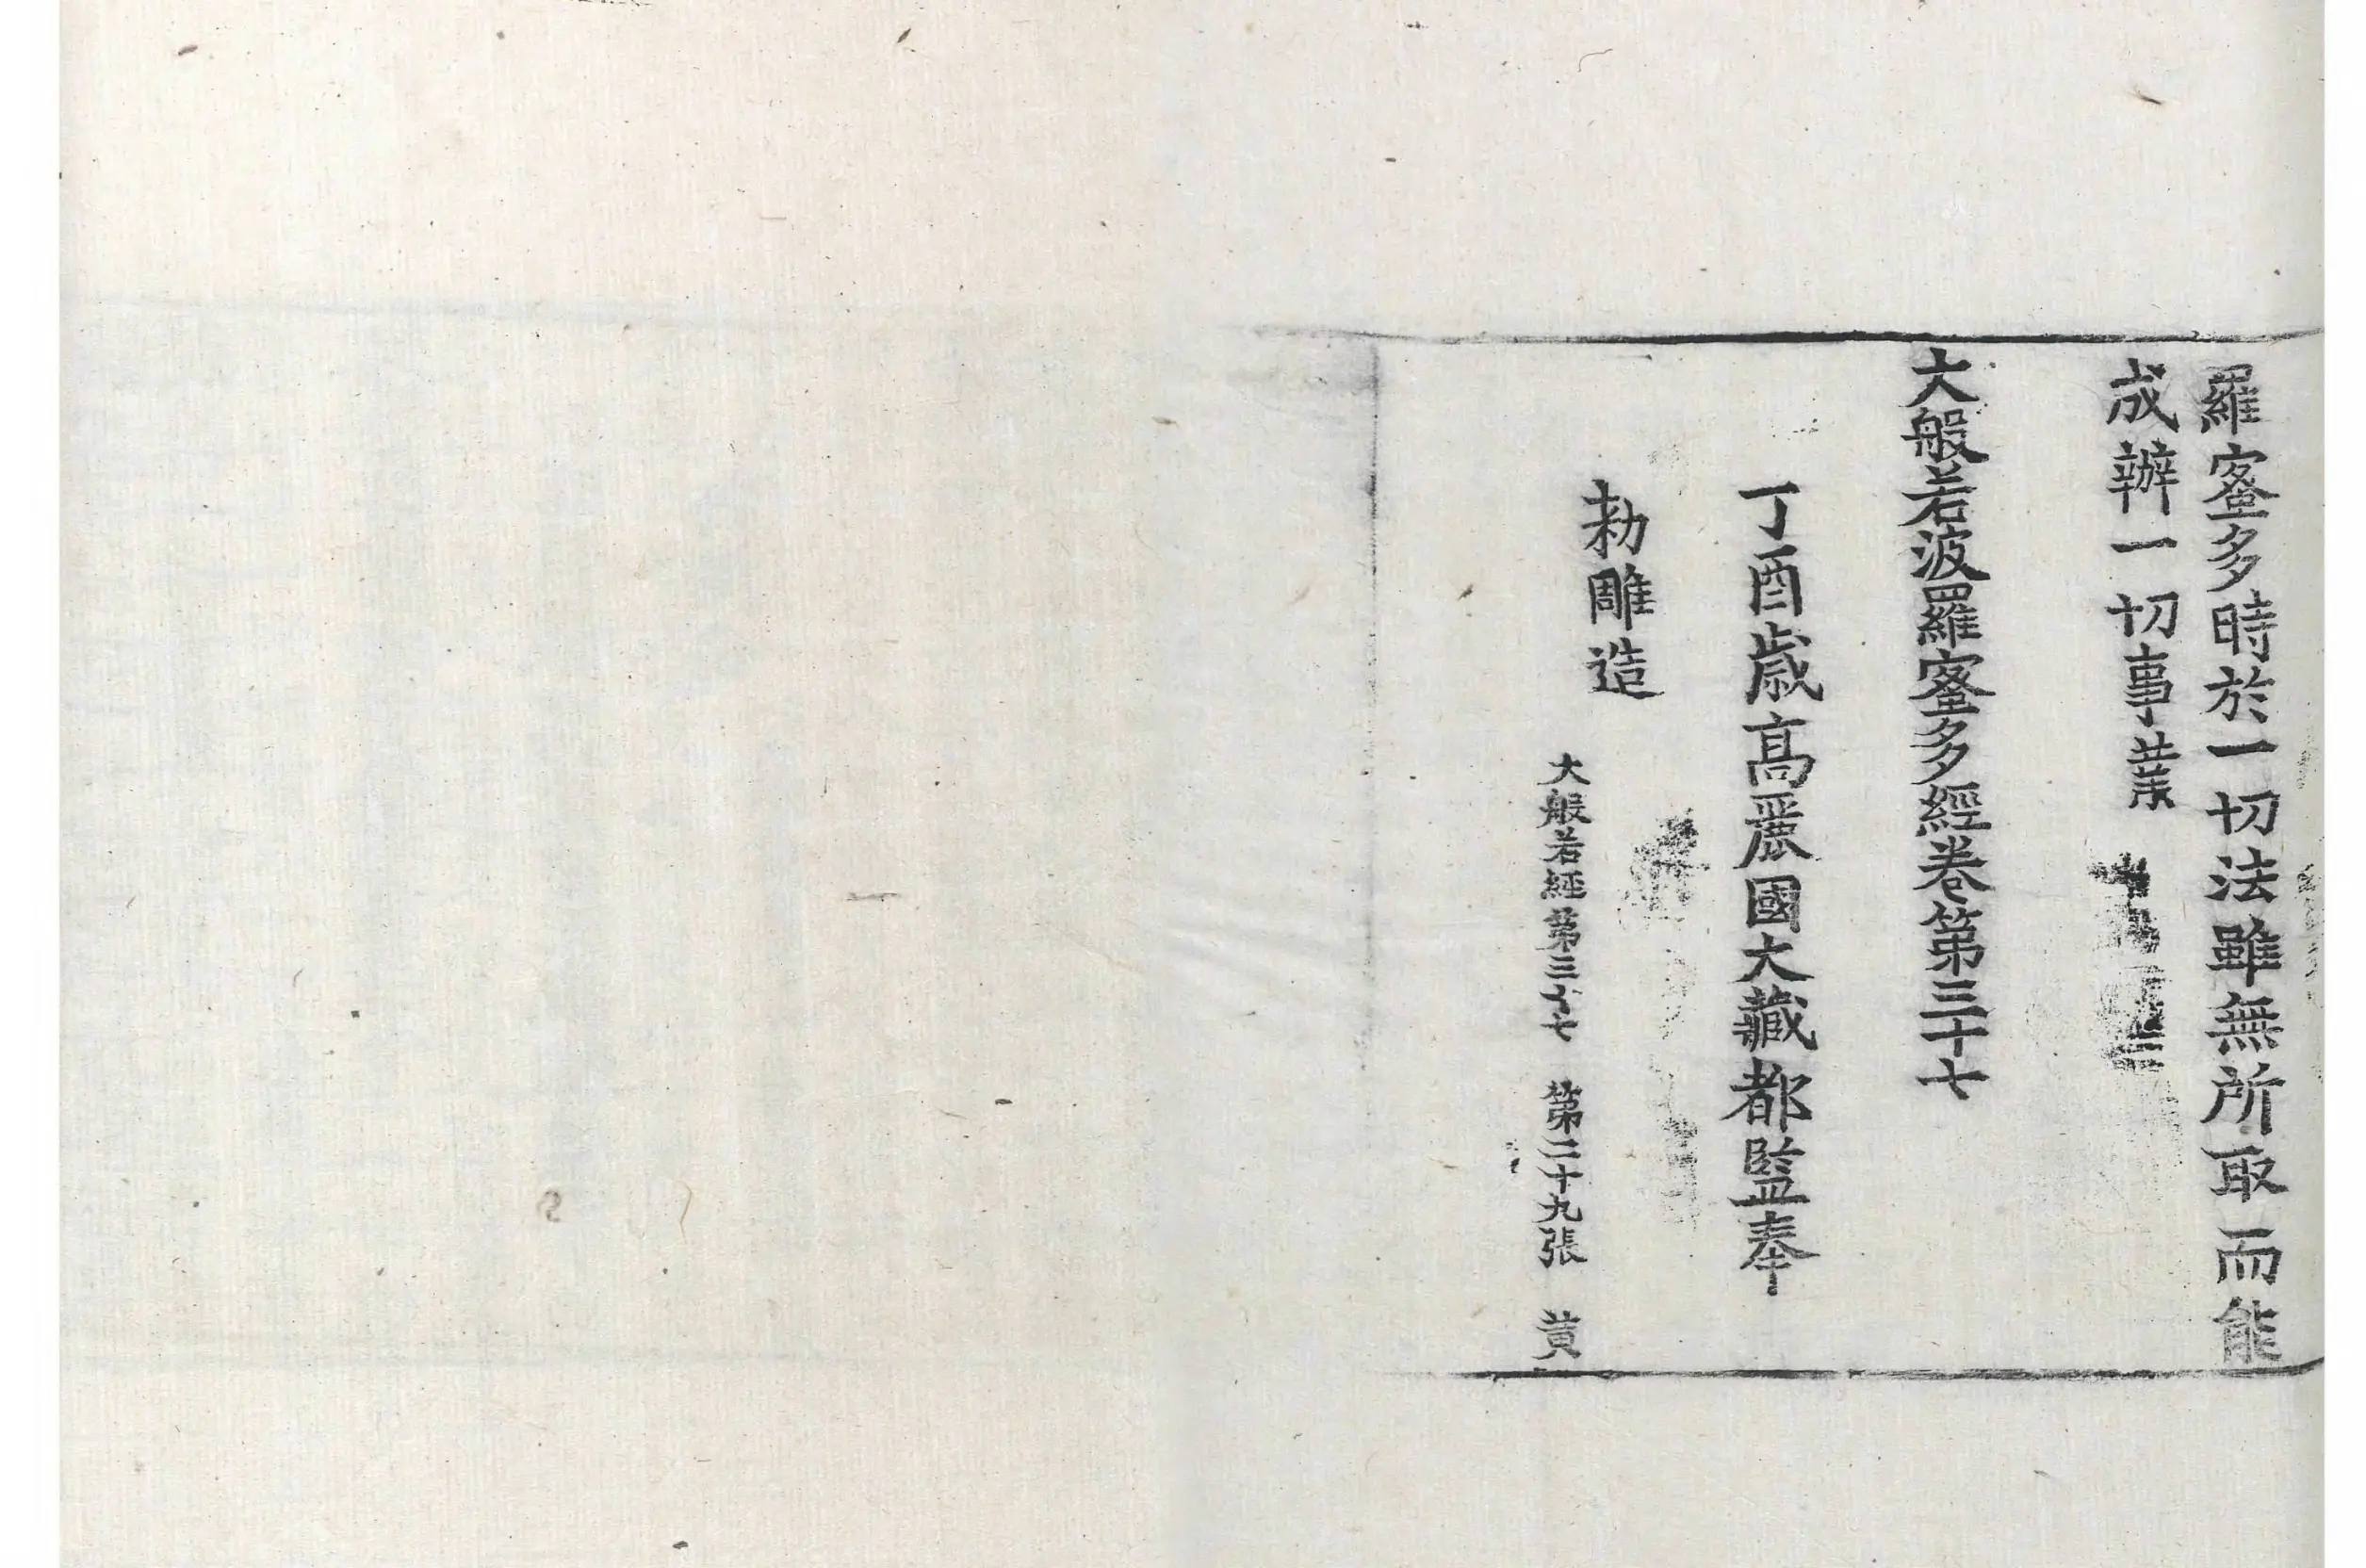 羅蜜多時於一切法雖無所取而能
成辦一切事業
大般若波羅蜜多經卷第三十七
丁酉歲高麗國大藏都監奉
勑雕造
大般若經第三十七 第二十九張 黃